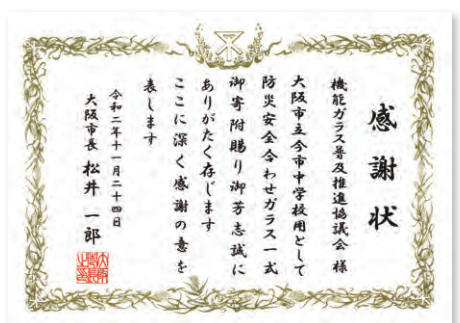 感謝状
機能ガラス普及推進協議会 様
大阪市立今市中学校用として
防災安全合わせガラス一式
御寄附賜り御芳志誠に
ありがたく存じます
ここに深く感謝の意を
表します
令和二年十一月二十四日
大阪市長 松井 一郎